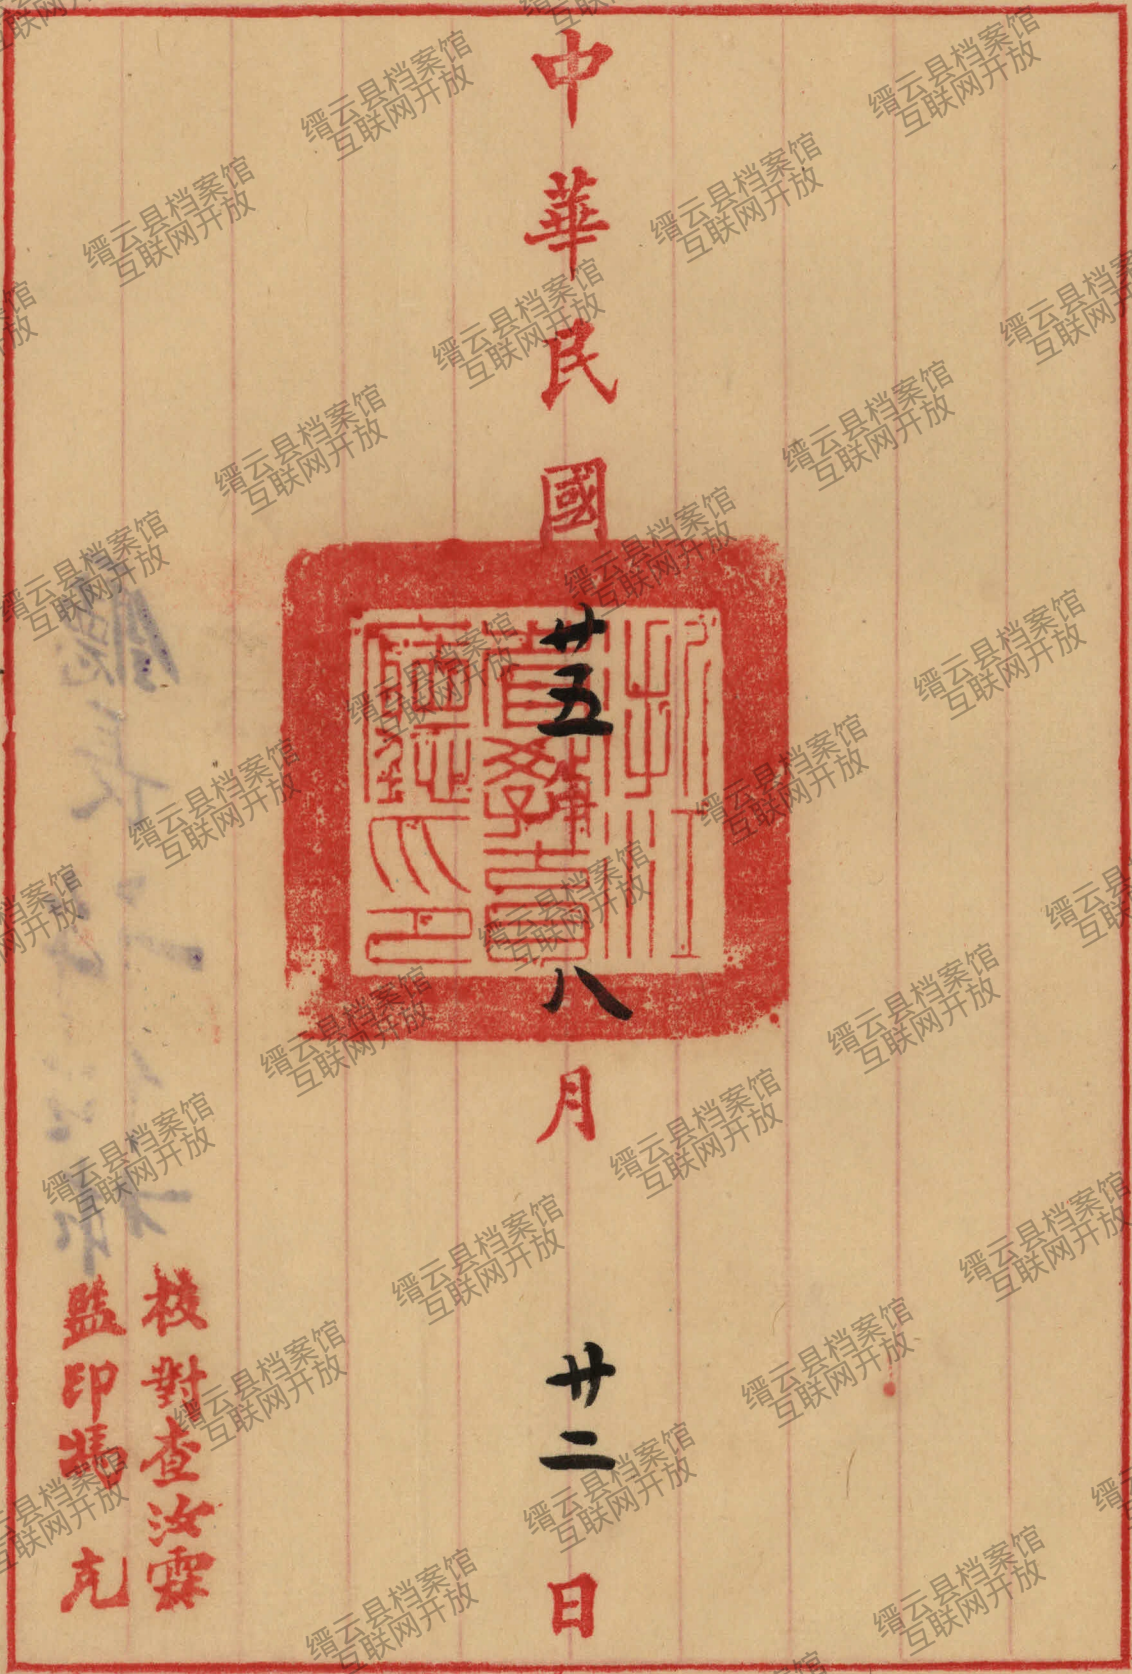 中華民國廿五年八月廿二日
浙江
省教育
廳之印
校對查汝霖
監印馮克
缙云县档案馆
互联网开放